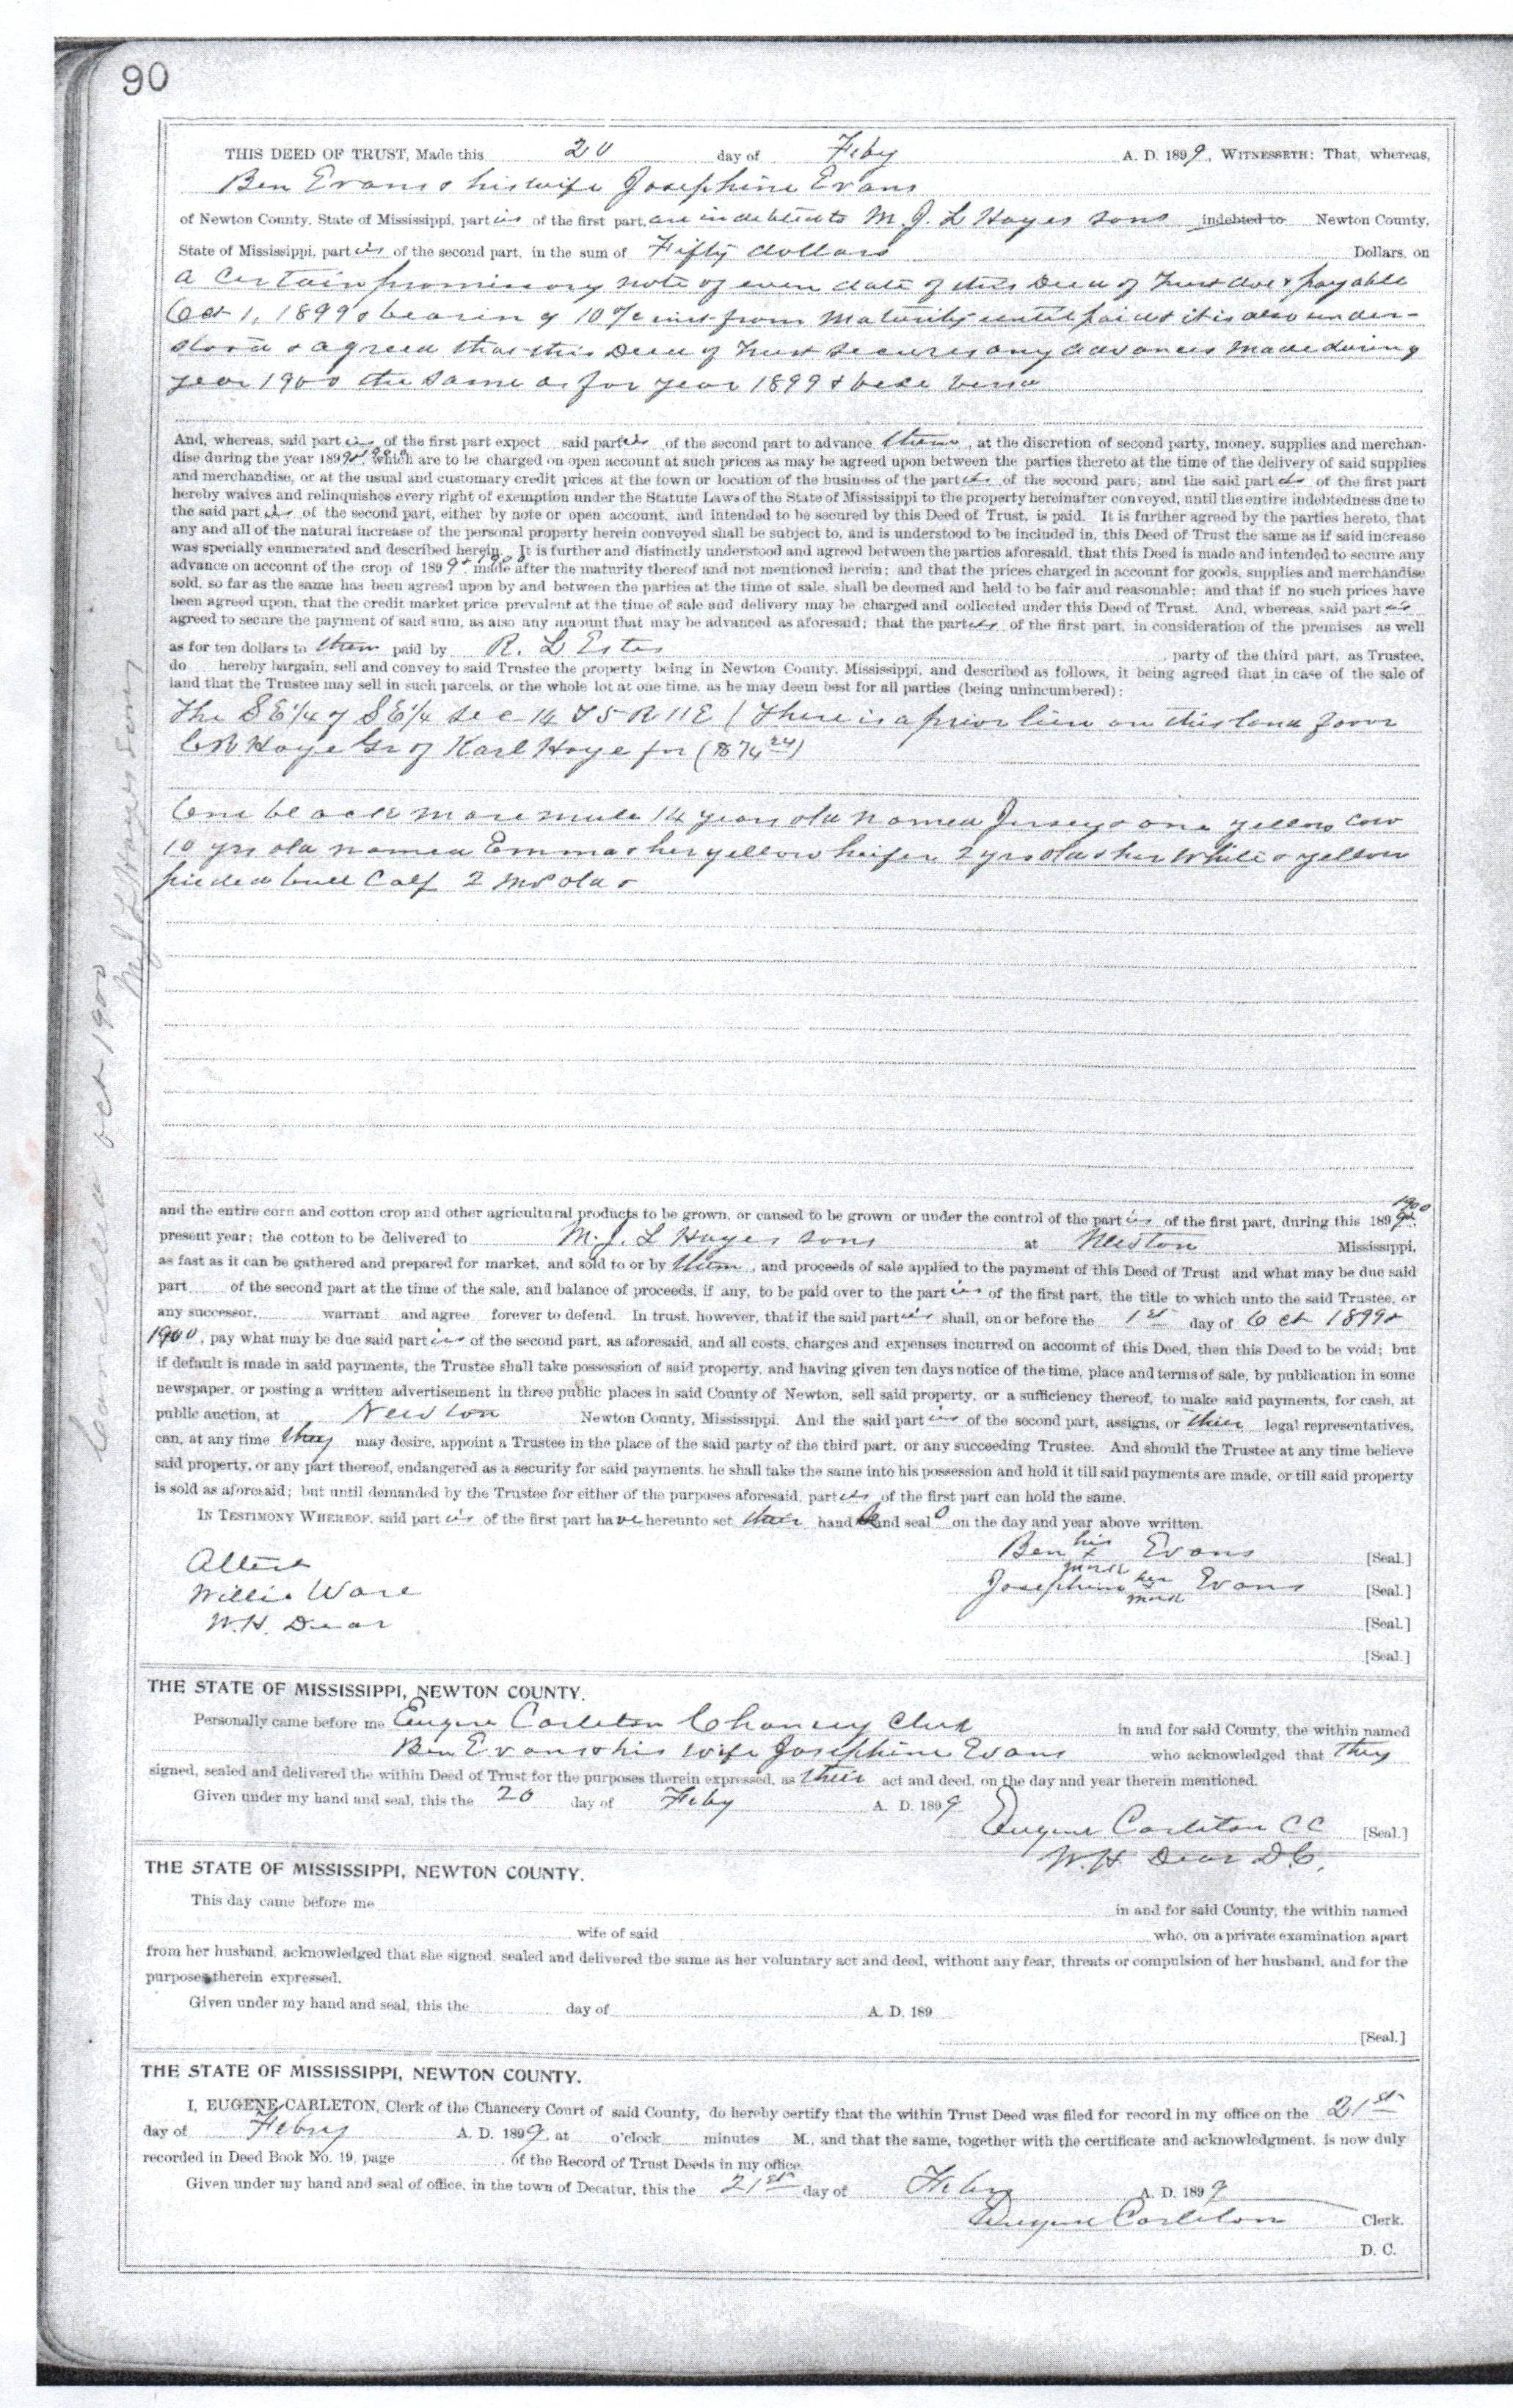 90
THIS DEED OF TRUST, Made this 20 day of Feby A. D. 1899, WITNESSETH: That, whereas,
Ben Evans & his wife Josephine Evans
of Newton County, State of Mississippi, parties of the first part, are indebted to M. J. L Hoyes sons indebted to Newton County,
State of Mississippi, parties of the second part, in the sum of Fifty dollars Dollars, on
a certain promissory note of even date of this Deed of Trust due & payable
Oct 1, 1899 & bearing 10 % int from maturity until paid & it is also under-
stood & agreed that this Deed of Trust secures any advances made during
year 1900 the same as for year 1899 & vice versa
And, whereas, said parties of the first part expect said parties of the second part to advance them, at the discretion of second party, money, supplies and merchan-
dise during the year 1899 & 1900, which are to be charged on open account at such prices as may be agreed upon between the parties thereto at the time of the delivery of said supplies
and merchandise, or at the usual and customary credit prices at the town or location of the business of the parties of the second part; and the said parties of the first part
hereby waives and relinquishes every right of exemption under the Statute Laws of the State of Mississippi to the property hereinafter conveyed, until the entire indebtedness due to
the said parties of the second part, either by note or open account, and intended to be secured by this Deed of Trust, is paid. It is further agreed by the parties hereto, that
any and all of the natural increase of the personal property herein conveyed shall be subject to, and is understood to be included in, this Deed of Trust the same as if said increase
was specially enumerated and described herein. It is further and distinctly understood and agreed between the parties aforesaid, that this Deed is made and intended to secure any
advance on account of the crop of 1899 & 1900, made after the maturity thereof and not mentioned herein; and that the prices charged in account for goods, supplies and merchandise
sold, so far as the same has been agreed upon by and between the parties at the time of sale, shall be deemed and held to be fair and reasonable; and that if no such prices have
been agreed upon, that the credit market price prevalent at the time of sale and delivery may be charged and collected under this Deed of Trust. And, whereas, said parties
agreed to secure the payment of said sum, as also any amount that may be advanced as aforesaid; that the parties of the first part, in consideration of the premises as well
as for ten dollars to them paid by R. L Estes, party of the third part, as Trustee,
do hereby bargain, sell and convey to said Trustee the property being in Newton County, Mississippi, and described as follows, it being agreed that in case of the sale of
land that the Trustee may sell in such parcels, or the whole lot at one time, as he may deem best for all parties (being unincumbered):
The S E 1/4 of S E 1/4 Sec 14 T 5 R 11 E (There is a prior lien on this land favor
Hoye Gr of Karl Hoye for
One black mare mule 14 years old named Jersey & one yellow cow
10 yrs old named Emma & her yellow heifer 2 yrs old & her white & yellow
pieded bull calf 2 mos old &
and the entire corn and cotton crop and other agricultural products to be grown, or caused to be grown or under the control of the parties of the first part, during this 1899 & 1900
present year; the cotton to be delivered to M. J. L Hoyes sons at Newton Mississippi,
as fast as it can be gathered and prepared for market, and sold to or by them, and proceeds of sale applied to the payment of this Deed of Trust and what may be due said
part of the second part at the time of the sale, and balance of proceeds, if any, to be paid over to the parties of the first part, the title to which unto the said Trustee, or
any successor, warrant and agree forever to defend. In trust, however, that if the said parties shall, on or before the 1st day of Oct 1899 &
1900, pay what may be due said parties of the second part, as aforesaid, and all costs, charges and expenses incurred on account of this Deed, then this Deed to be void; but
if default is made in said payments, the Trustee shall take possession of said property, and having given ten days notice of the time, place and terms of sale, by publication in some
newspaper, or posting a written advertisement in three public places in said County of Newton, sell said property, or a sufficiency thereof, to make said payments, for cash, at
public auction, at Newton Newton County, Mississippi. And the said parties of the second part, assigns, or their legal representatives,
can, at any time they may desire, appoint a Trustee in the place of the said party of the third part, or any succeeding Trustee. And should the Trustee at any time believe
said property, or any part thereof, endangered as a security for said payments, he shall take the same into his possession and hold it till said payments are made, or till said property
is sold as aforesaid; but until demanded by the Trustee for either of the purposes aforesaid, parties of the first part can hold the same.
IN TESTIMONY WHEREOF, said parties of the first part have hereunto set their hands and seals on the day and year above written.
Attest
Willie Ware
W. H. Dear
Ben his x mark Evans [Seal.]
Josephine her x mark Evans [Seal.]
[Seal.]
[Seal.]
THE STATE OF MISSISSIPPI, NEWTON COUNTY.
Personally came before me Eugene Carleton Chancery Clerk in and for said County, the within named
Ben Evans & his wife Josephine Evans who acknowledged that they
signed, sealed and delivered the within Deed of Trust for the purposes therein expressed, as their act and deed, on the day and year therein mentioned.
Given under my hand and seal, this the 20 day of Feby A. D. 1899
Eugene Carleton C C [Seal.]
W. H Dear D. C.
THE STATE OF MISSISSIPPI, NEWTON COUNTY.
This day came before me in and for said County, the within named
wife of said who, on a private examination apart
from her husband, acknowledged that she signed, sealed and delivered the same as her voluntary act and deed, without any fear, threats or compulsion of her husband, and for the
purposes therein expressed.
Given under my hand and seal, this the day of A. D. 189
[Seal.]
THE STATE OF MISSISSIPPI, NEWTON COUNTY.
I, EUGENE CARLETON, Clerk of the Chancery Court of said County, do hereby certify that the within Trust Deed was filed for record in my office on the 21st
day of Feby A. D. 1899, at o'clock minutes M., and that the same, together with the certificate and acknowledgment, is now duly
recorded in Deed Book No. 19, page of the Record of Trust Deeds in my office.
Given under my hand and seal of office, in the town of Decatur, this the 21st day of Feby A. D. 1899
Eugene Carleton Clerk.
D. C.
Cancelled Oct 1900
M J L Hoyes Sons